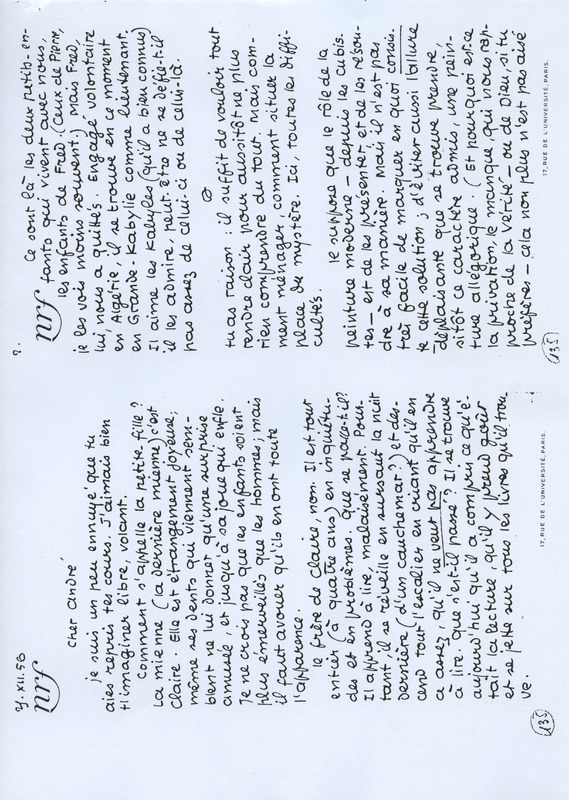 y. XII. 56
nrf
cher andré,
je suis un peu ennuyé que tu
aies repris tes cours. J'aimais bien
t'imaginer libre, volant.
Comment s'appelle la petite fille ?
La mienne (la dernière mienne) c'est
Claire. Elle est étrangement joyeuse;
même ses dents qui viennent sem-
blent ne lui donner qu'une surprise
amusée, et jusqu'à sa joue qui enfle.
Je ne crois pas que les enfants soient
plus émerveillés que les hommes; mais
il faut avouer qu'ils en ont toute
l'apparence.
le frère de Claire, non. Il est tout
entier (à quatre ans) en inquiétu-
des et en problèmes. Que se passe-t-il?
Il apprend à lire, malaisément. Pour-
tant il se réveille en sursaut la nuit
dernière (d'un cauchemar?) et des-
cend tout l'escalier en criant qu'il en
a assez, qu'il ne veut pas apprendre
à lire. Que s'est-il passé ? Il se trouve
aujourd'hui qu'il a compris ce qu'é-
tait la lecture, qu'il y prend goût
et se jette sur tous les livres qu'il trou-
ve.
135
17, RUE DE L'UNIVERSITÉ, PARIS.
2.
nrf
Ce sont là les deux petits-en-
fants qui vivent avec nous,
les enfants de Fred. (Ceux de Pierre,
je les vois moins souvent.) Mais Fred,
lui, nous a quittés. Engagé volontaire
en Algérie, il se trouve en ce moment
en Grande-Kabylie comme lieutenant.
Il aime les Kabyles (qu'il a bien connus)
il les admire, peut-être ne se défie-t-il
pas assez de celui-ci ou de celui-là.
tu as raison : il suffit de vouloir tout
rendre clair pour aussitôt ne plus
rien comprendre du tout. Mais com-
ment ménager, comment situer la
place du mystère. Ici, toutes les diffi-
cultés.
Je suppose que le rôle de la
peinture moderne – depuis les cubis-
tes – est de les présenter et de les résou-
dre à sa manière. Mais il n'est pas
très facile de marquer en quoi consis-
te cette solution; d'éviter aussi l'allure
déplaisante que se trouve prendre,
sitôt ce caractère admis, une pein-
ture allégorique. (Et pourquoi est-ce
la privation, le manque, qui nous rap-
proche de la vérité – ou de Dieu, si tu
préfères – cela non plus n'est pas aisé
135
17, RUE DE L'UNIVERSITÉ, PARIS.